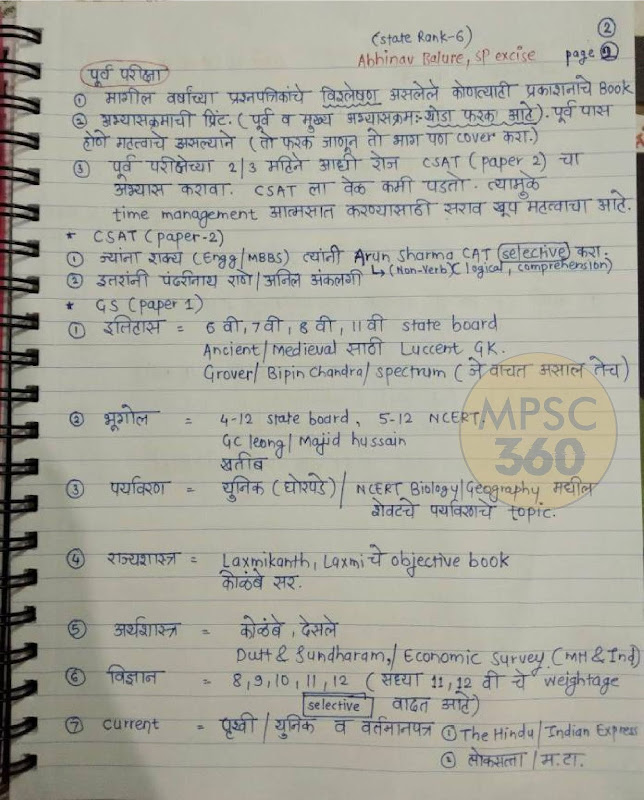 (State Rank-6)
②
Abhinav Balure, SP excise page ②
पूर्व परीक्षा
① मागील वर्षाच्या प्रश्नपत्रिकांचे विश्लेषण असलेले कोणत्याही प्रकाशनाचे Book
② अभ्यासक्रमाची प्रिंट. (पूर्व व मुख्य अभ्यासक्रम: थोडा फरक आहे). पूर्व पास
होणे महत्वाचे असल्याने (तो फरक जाणून तो भाग पण cover करा.)
③ पूर्व परीक्षेच्या 2/3 महिने आधी रोज CSAT (paper 2) चा
अभ्यास करावा. CSAT ला वेळ कमी पडतो. त्यामुळे
time management आत्मसात करण्यासाठी सराव खूप महत्वाचा आहे.
* CSAT (paper-2)
① ज्यांना शक्य (Engg/MBBS) त्यांनी Arun Sharma CAT selective करा.
↳ (Non-Verb)( logical, comprehension)
② इतरांनी पंढरीनाथ राणे/अनिल अंकलगी
* GS (paper 1)
① इतिहास = 6 वी, 7 वी, 8 वी, 11 वी state board
Ancient/Medieval साठी Luccent GK.
Grover/ Bipin Chandra/ spectrum (जे वाचत असाल तेच)
② भूगोल = 4-12 state board, 5-12 NCERT.
GC leong/ Majid hussain
खतीब
③ पर्यावरण = युनिक (घोरपडे) / NCERT Biology/Geography मधील
शेवटचे पर्यावरणाचे topic.
④ राज्यशास्त्र = Laxmikanth, Laxmi चे objective book
कोळंबे सर.
⑤ अर्थशास्त्र = कोळंबे, देसले
Dutt & Sundharam,/ Economic Survey (MH & Ind)
⑥ विज्ञान = 8, 9, 10, 11, 12 (सध्या 11, 12 वी चे weightage
selective वाढत आहे)
⑦ current = पृथ्वी / युनिक व वर्तमानपत्र ① The Hindu/ Indian Express
② लोकसत्ता / म.टा.
MPSC
360